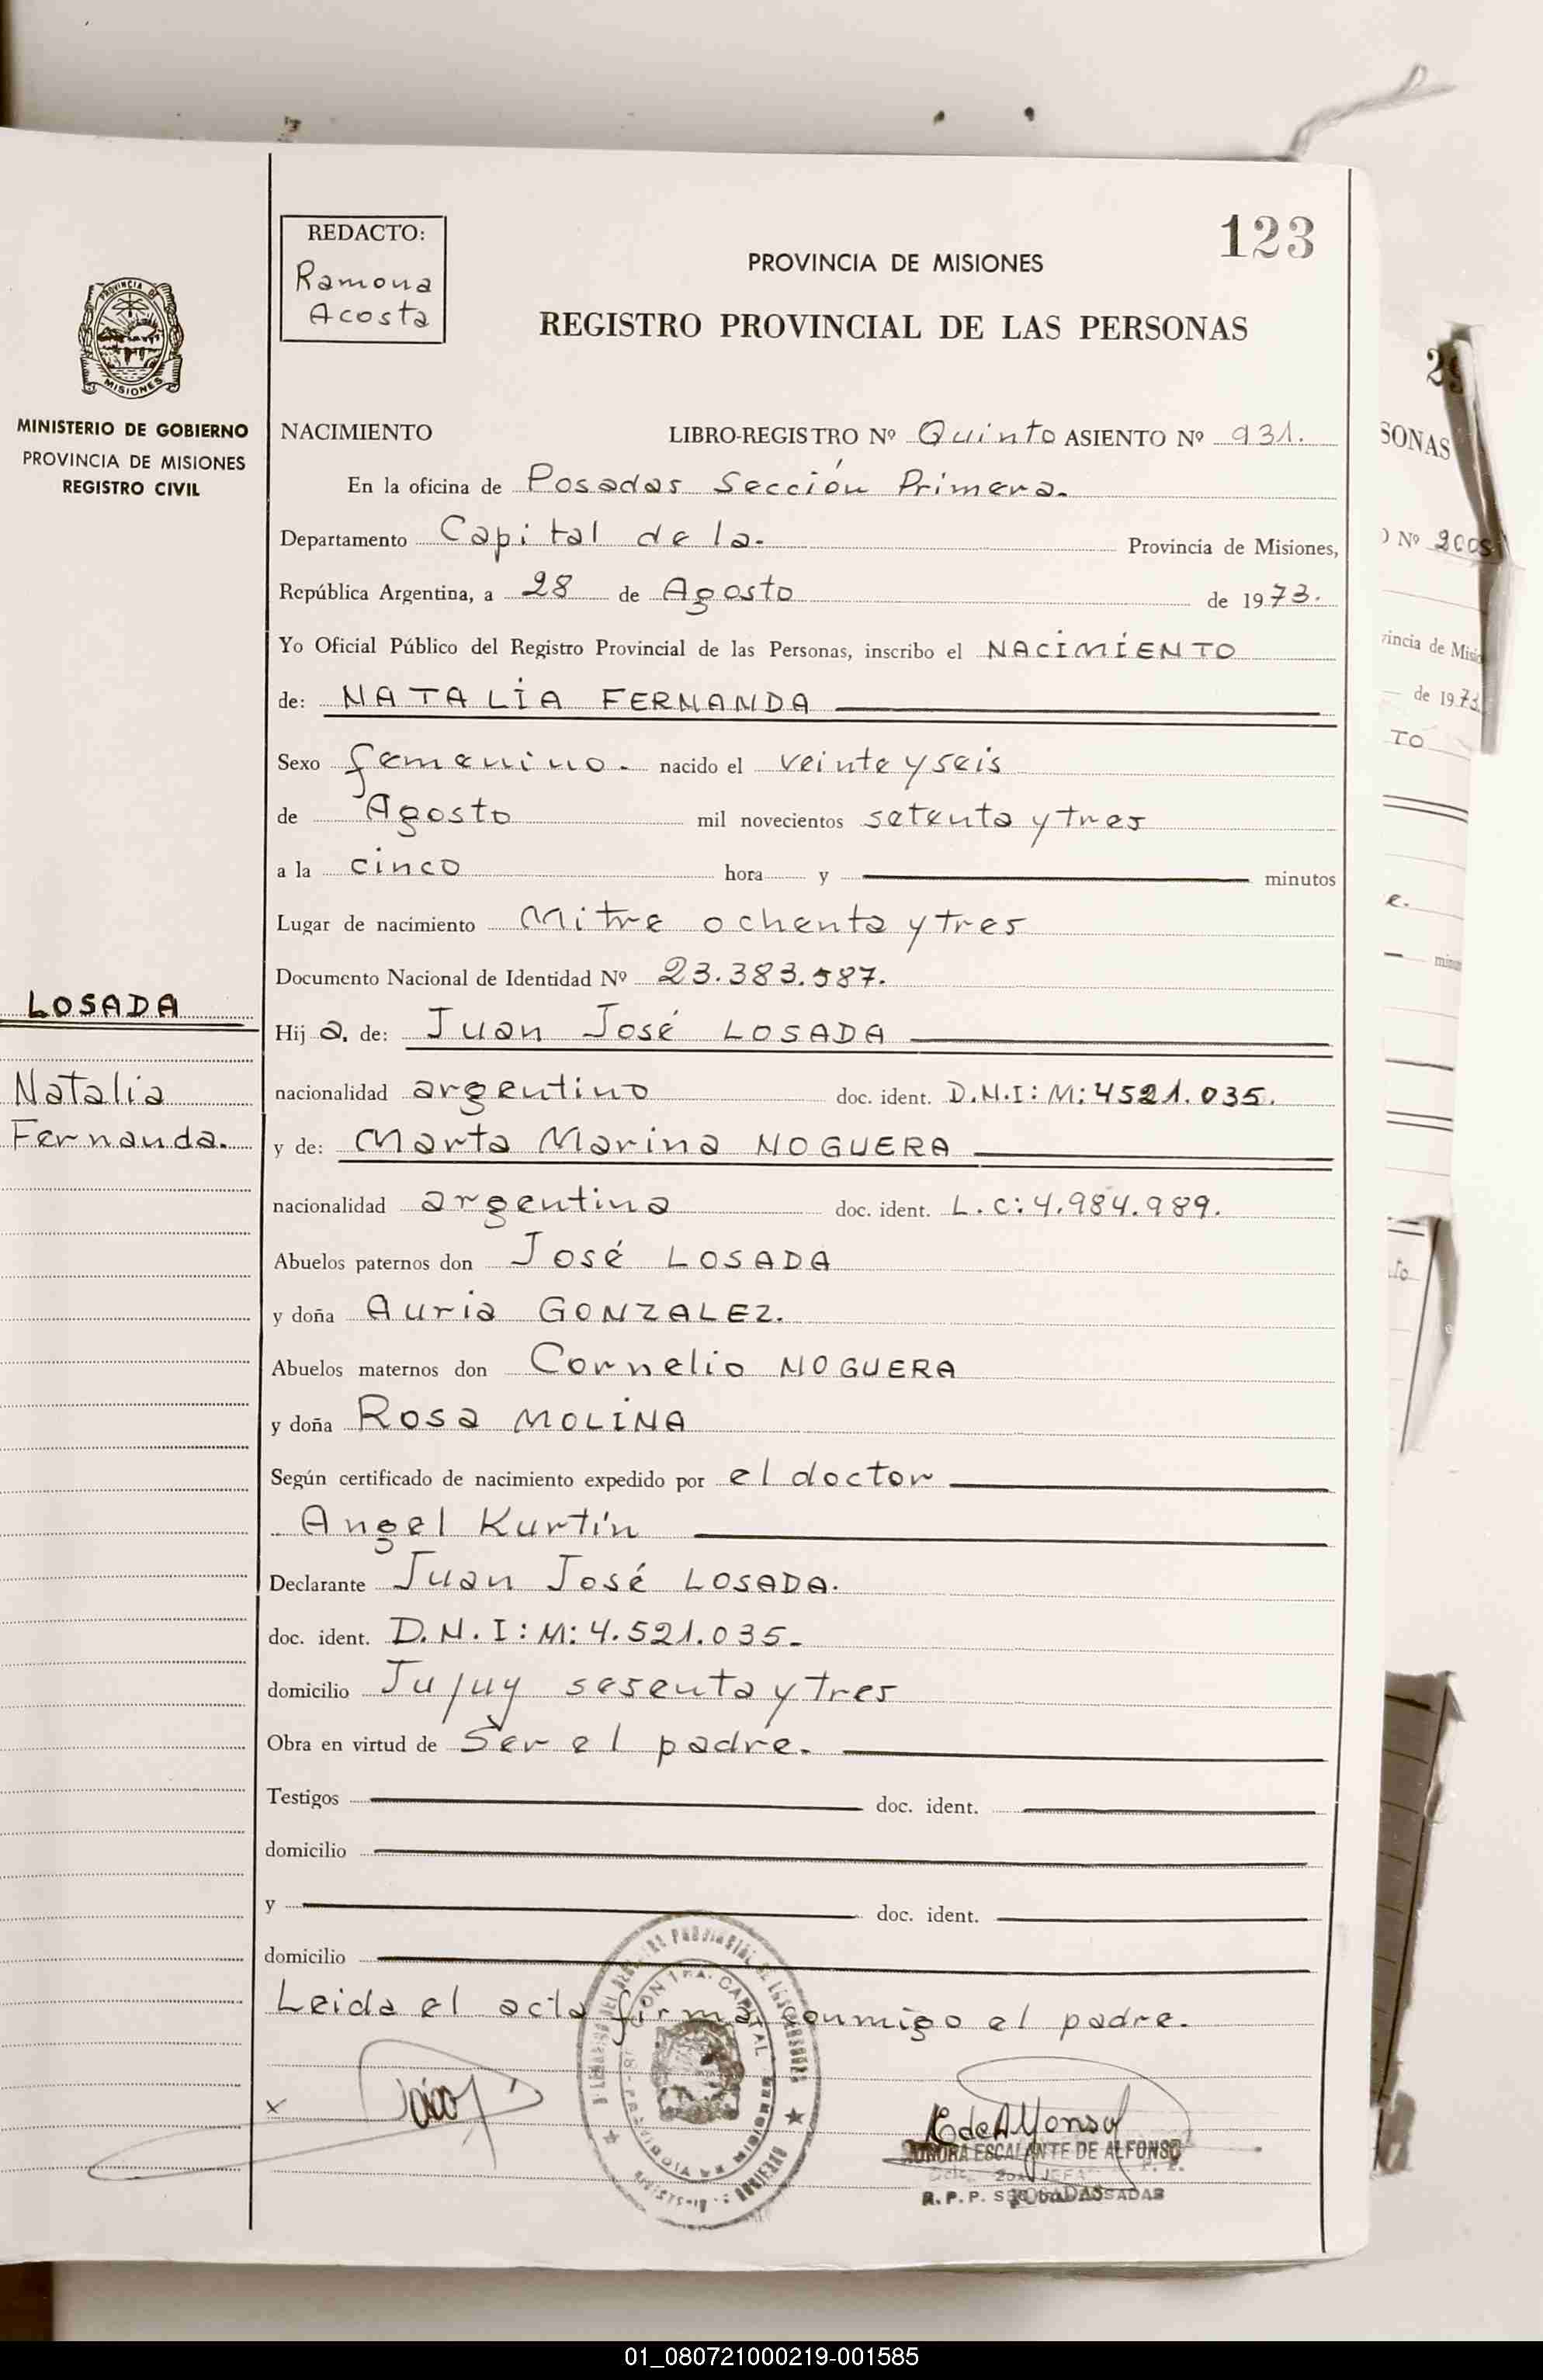 REDACTO:
Ramona
Acosta
123
PROVINCIA DE MISIONES
REGISTRO PROVINCIAL DE LAS PERSONAS
PROVINCIA DE
MISIONES
MINISTERIO DE GOBIERNO
PROVINCIA DE MISIONES
REGISTRO CIVIL
LOSADA
Natalia
Fernanda.
NACIMIENTO LIBRO-REGISTRO Nº Quinto ASIENTO Nº 931.
En la oficina de Posadas Sección Primera.
Departamento Capital de la. Provincia de Misiones,
República Argentina, a 28 de Agosto de 1973.
Yo Oficial Público del Registro Provincial de las Personas, inscribo el NACIMIENTO
de: NATALIA FERNANDA
Sexo femenino. nacido el veinte y seis
de Agosto mil novecientos setenta y tres
a la cinco hora y minutos
Lugar de nacimiento Mitre ochenta y tres
Documento Nacional de Identidad Nº 23.383.587.
Hij a. de: Juan José LOSADA
nacionalidad argentino doc. ident. D.N.I: M: 4521.035.
y de: Marta Marina NOGUERA
nacionalidad argentina doc. ident. L.C: 4.984.989.
Abuelos paternos don José LOSADA
y doña Auria GONZALEZ.
Abuelos maternos don Cornelio NOGUERA
y doña Rosa MOLINA
Según certificado de nacimiento expedido por el doctor
Angel Kurtín
Declarante Juan José LOSADA.
doc. ident. D.N.I: M: 4.521.035-
domicilio Jujuy sesenta y tres
Obra en virtud de Ser el padre.
Testigos doc. ident.
domicilio
y doc. ident.
domicilio
Leida el acta firma conmigo el padre.
x
ESCALANTE DE ALFONSO
R.P.P.
SONAS
Nº 2005
vincia de Misio
de 1973
TO
e.
minu
01_080721000219-001585